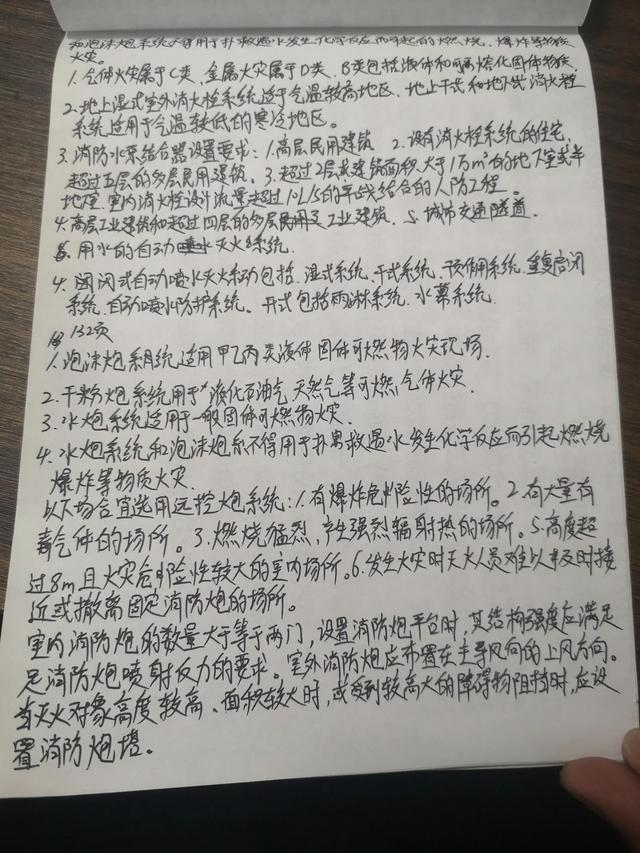 和泡沫炮系统不得用于扑救遇水发生化学反应而引起的燃烧、爆炸等物质
火灾。
1. 气体火灾属于C类、金属火灾属于D类、B类包括液体和可熔化固体物质
2. 地上湿式室外消火栓系统适于气温较高地区、地上干式和地下式消火栓
系统适用于气温较低的寒冷地区。
3. 消防水泵结合器设置要求：1. 高层民用建筑 2. 设有消火栓系统的住宅、
超过五层的多层民用建筑、3. 超过2层或建筑面积大于1万m²的地下室或半
地下室、室内消火栓设计流量超过10L/S的平战结合的人防工程。
4. 高层工业建筑和超过四层的多层工业建筑、5. 城市交通隧道
6. 用水的自动灭火系统.
4. 闭式自动喷水灭火系统包括、湿式系统、干式系统、预作用系统、重复启闭
系统、自动喷水防护系统。开式包括雨淋系统、水幕系统.
132页
1. 泡沫炮系统适用甲乙丙类液体固体可燃物火灾现场.
2. 干粉炮系统用于液化石油气 天然气等可燃气体火灾.
3. 水炮系统适用于一般固体可燃物火灾.
4. 水炮系统和泡沫炮系不得用于扑救遇水发生化学反应而引起燃烧
爆炸等物质火灾.
以下场合宜选用远控炮系统：1. 有爆炸危险性的场所。2. 有大量有
毒气体的场所。3. 燃烧猛烈、产生强烈辐射热的场所。5. 高度超
过8m且火灾危险性较大的室内场所。6. 发生火灾时灭火人员难以及时接
近或撤离固定消防炮的场所。
室内消防炮的数量大于等于两门，设置消防炮平台时，其结构强度应满足
足消防炮喷射反力的要求。室外消防炮应布置在主导风向的上风方向。
当灭火对象高度较高、面积较大时，或受到较高大的障碍物阻挡时，应设
置消防炮塔。